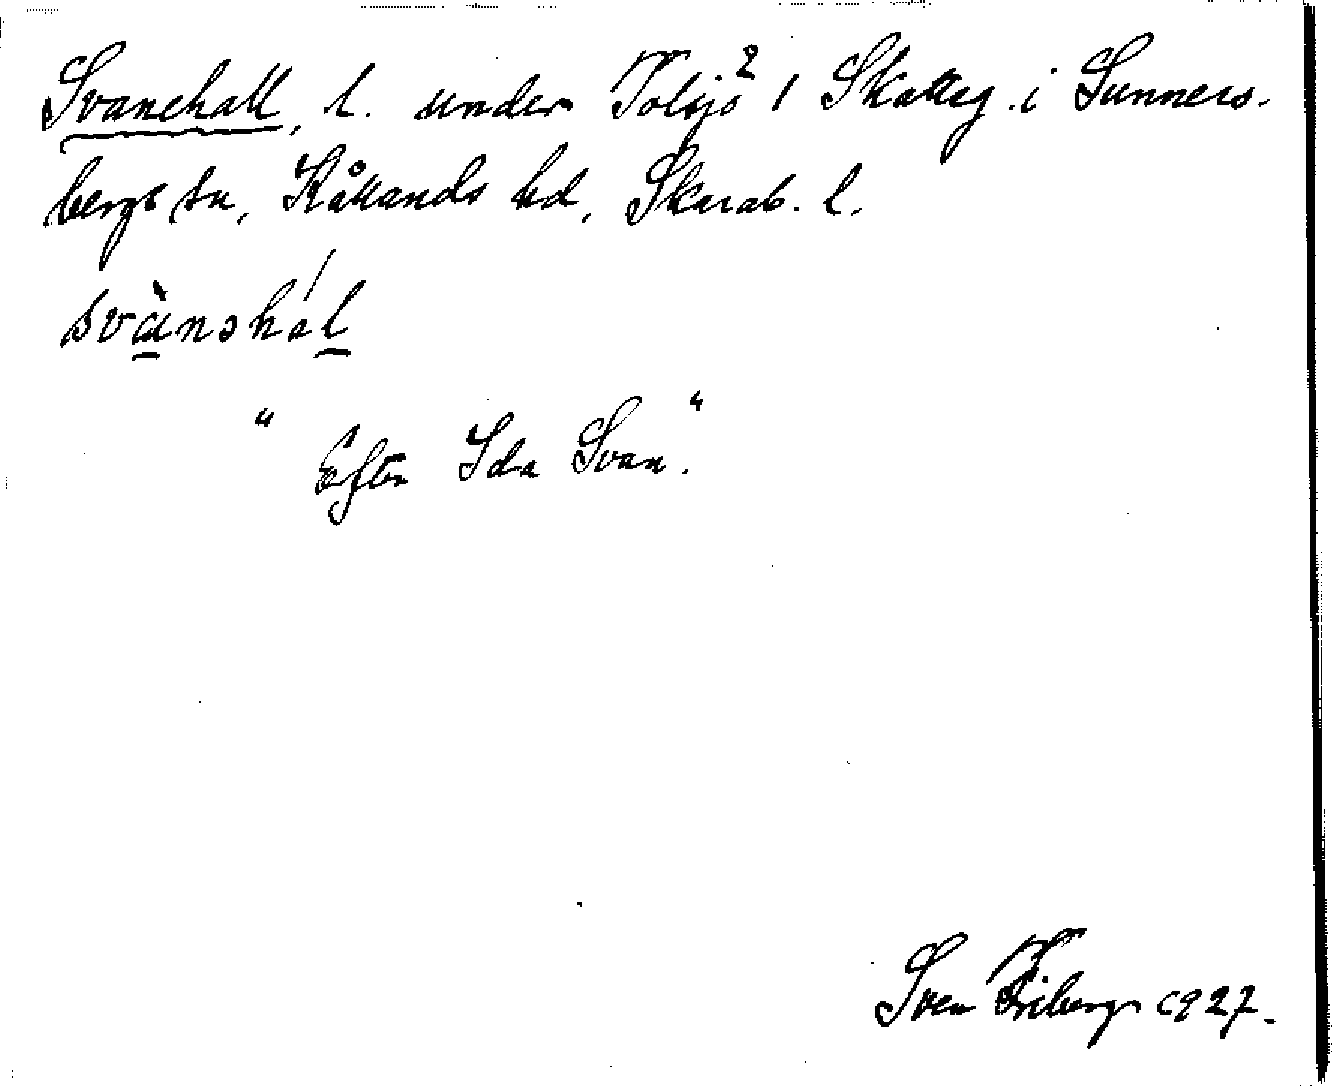 Svanehall, l. under Tolsjö² 1 Skatteg. i Sunners-
bergs sn, Kållands hd, Skarab. l.
svànəhál
" Efter Ida Svan."
Sven Friberg 1927.